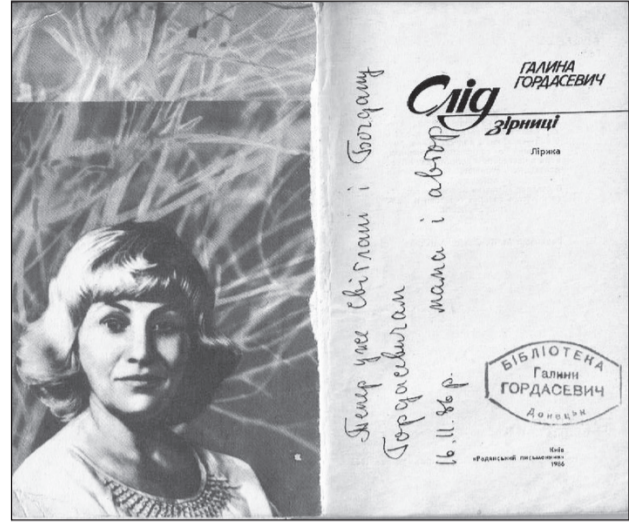 ГАЛИНА
ГОРДАСЕВИЧ
Слід
зірниці
Лірика
Тепер уже Світлані і Богдану
Гордасевичам
мама і автор
16.11.86 р.
БІБЛІОТЕКА
Галини
ГОРДАСЕВИЧ
Донецьк
Київ
«Радянський письменник»
1986